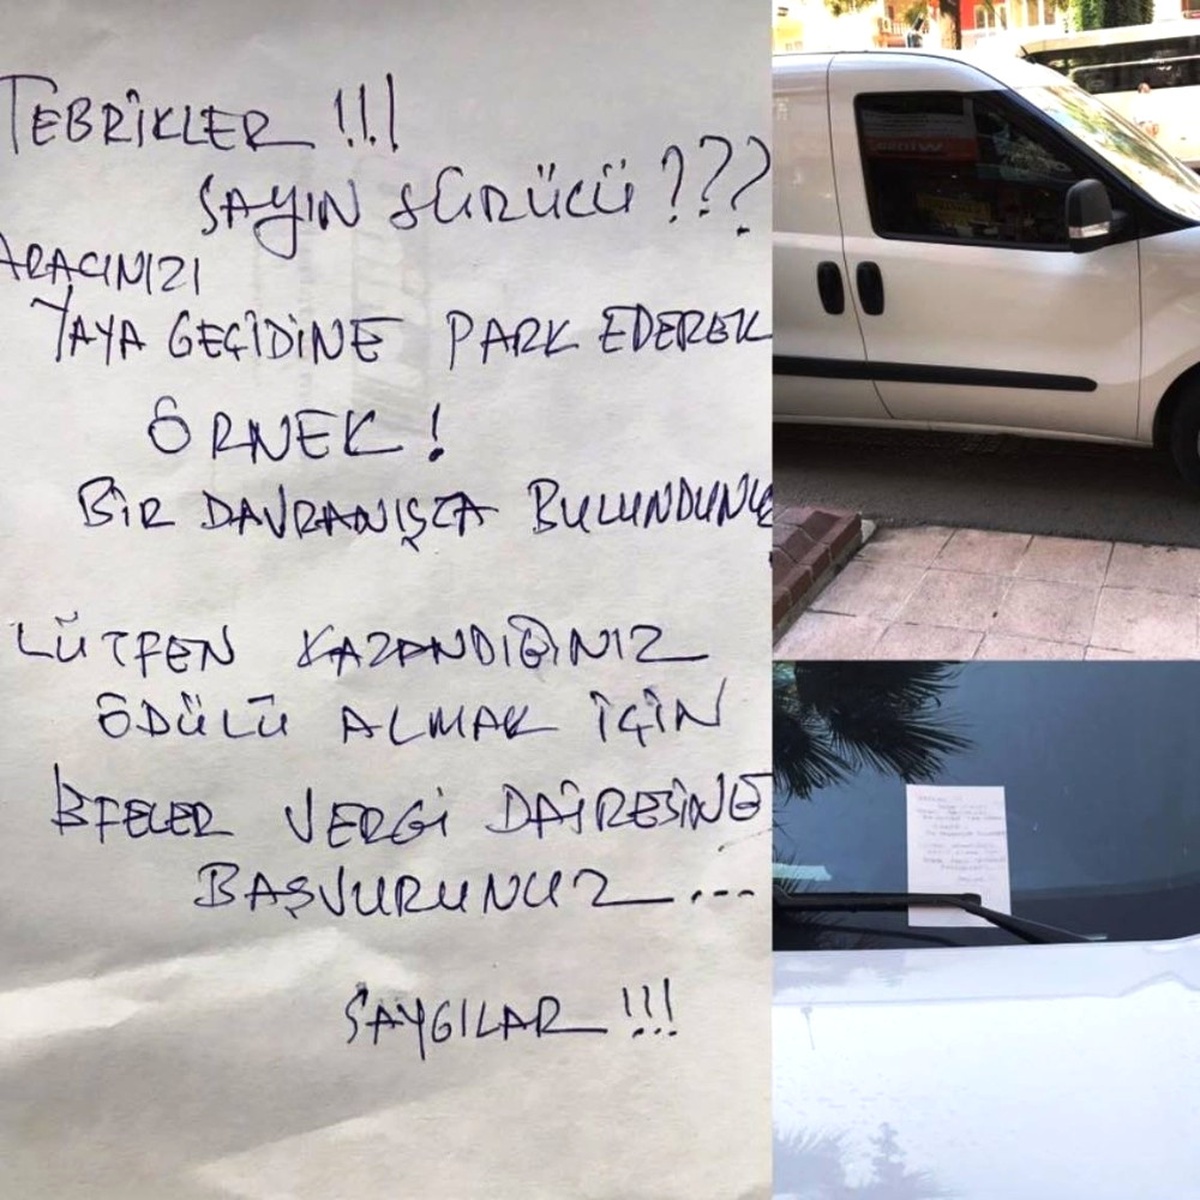 TEBRİKLER !!!
SAYIN SÜRÜCÜ ???
ARACINIZI
YAYA GEÇİDİNE PARK EDEREK
ÖRNEK !
BİR DAVRANIŞTA BULUNDUNU
LÜTFEN KAZANDIĞINIZ
ÖDÜLÜ ALMAK İÇİN
EFELER VERGİ DAİRESİNE
BAŞVURUNUZ ....
SAYGILAR !!!